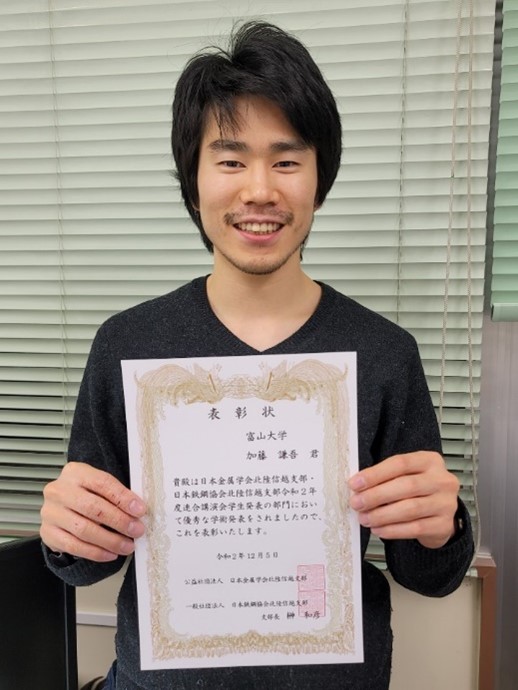 表彰状
富山大学
加藤 謙吾 君
貴殿は日本金属学会北陸信越支部・
日本鉄鋼協会北陸信越支部令和2年
度連合講演会学生発表の部門におい
て優秀な学術発表をされましたので、
これを表彰いたします。
令和2年12月5日
公益社団法人 日本金属学会北陸信越支部
一般社団法人 日本鉄鋼協会北陸信越支部
支部長 榊 和彦